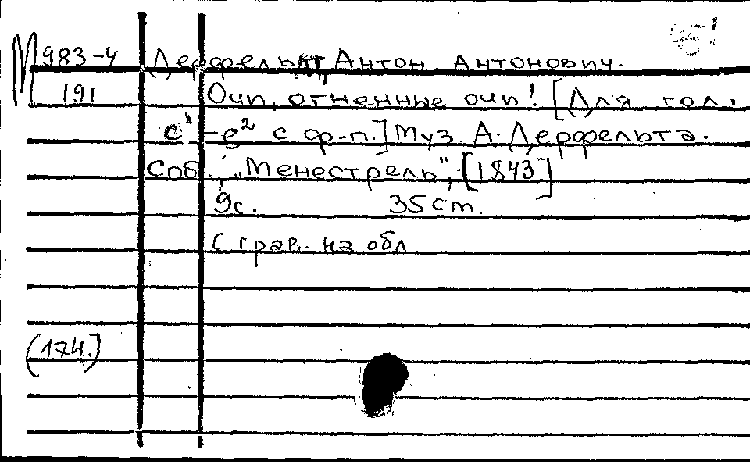 М 983-4 Дерфельдт, Антон Антонович.
191 Очи, огненные очи! [Для гол.
c¹-g² с ф-п.] Муз А. Дерфельдта.
Соб., "Менестрель", [1843]
9с. 35 cm.
С грав. на обл
(174.)